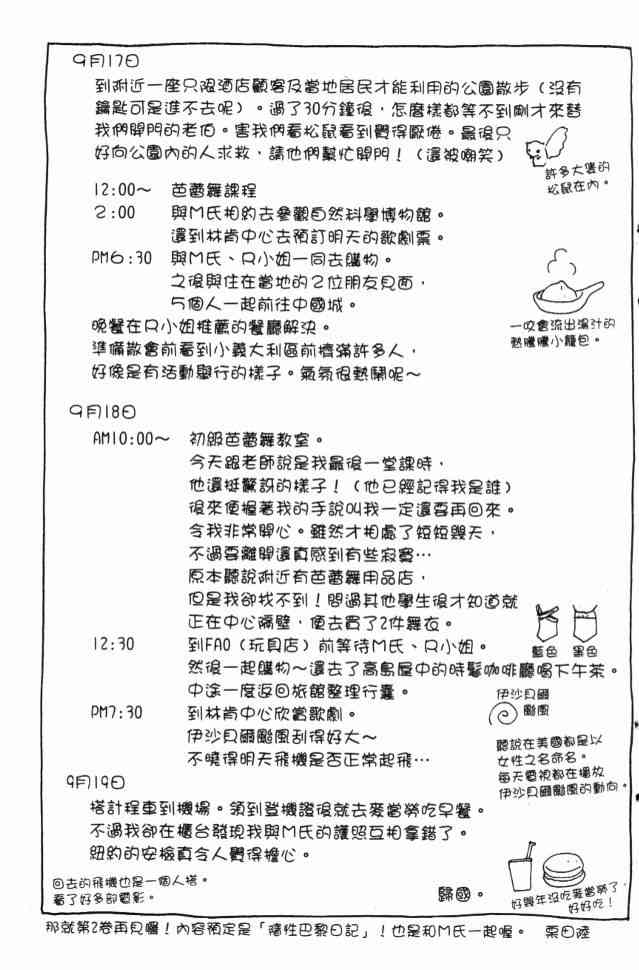 9月17日
到附近一座只限酒店顧客及當地居民才能利用的公園散步（沒有
鑰匙可是進不去呢）。過了30分鐘後，怎麼樣都等不到剛才來替
我們開門的老伯。害我們看松鼠看到覺得厭倦。最後只
好向公園內的人求救，請他們幫忙開門！（還被嘲笑）
許多大隻的
松鼠在內。
12:00～ 芭蕾舞課程
2:00 與M氏相約去參觀自然科學博物館。
還到林肯中心去預訂明天的歌劇票。
PM6:30 與M氏、R小姐一同去購物。
之後與住在當地的2位朋友見面，
5個人一起前往中國城。
晚餐在R小姐推薦的餐廳解決。
準備散會前看到小義大利區前擠滿許多人，
好像是有活動舉行的樣子。氣氛很熱鬧呢～
一咬會流出湯汁的
熱騰騰小籠包。
9月18日
AM10:00～ 初級芭蕾舞教室。
今天跟老師說是我最後一堂課時，
他還挺驚訝的樣子！（他已經記得我是誰）
後來便握著我的手說叫我一定還要再回來。
令我非常開心。雖然才相處了短短幾天，
不過要離開還真感到有些寂寞…
原本聽說附近有芭蕾舞用品店，
但是我卻找不到！問過其他學生後才知道就
正在中心隔壁，便去買了2件舞衣。
藍色 黑色
12:30 到FAO（玩具店）前等待M氏、R小姐。
然後一起購物～還去了高島屋中的時髦咖啡廳喝下午茶。
中途一度返回旅館整理行囊。
PM7:30 到林肯中心欣賞歌劇。
伊沙貝爾颱風刮得好大～
不曉得明天飛機是否正常起飛…
伊沙貝爾
颱風
聽說在美國都是以
女性之名命名。
每天電視都在播放
伊沙貝爾颱風的動向。
9月19日
搭計程車到機場。領到登機證後就去麥當勞吃早餐。
不過我卻在櫃台發現我與M氏的護照互相拿錯了。
紐約的安檢真令人覺得擔心。
回去的飛機也是一個人搭。
看了好多部電影。
歸國。
好幾年沒吃麥當勞了，
好好吃！
那就第2卷再見囉！內容預定是「隨性巴黎日記」！也是和M氏一起喔。 栗田陸